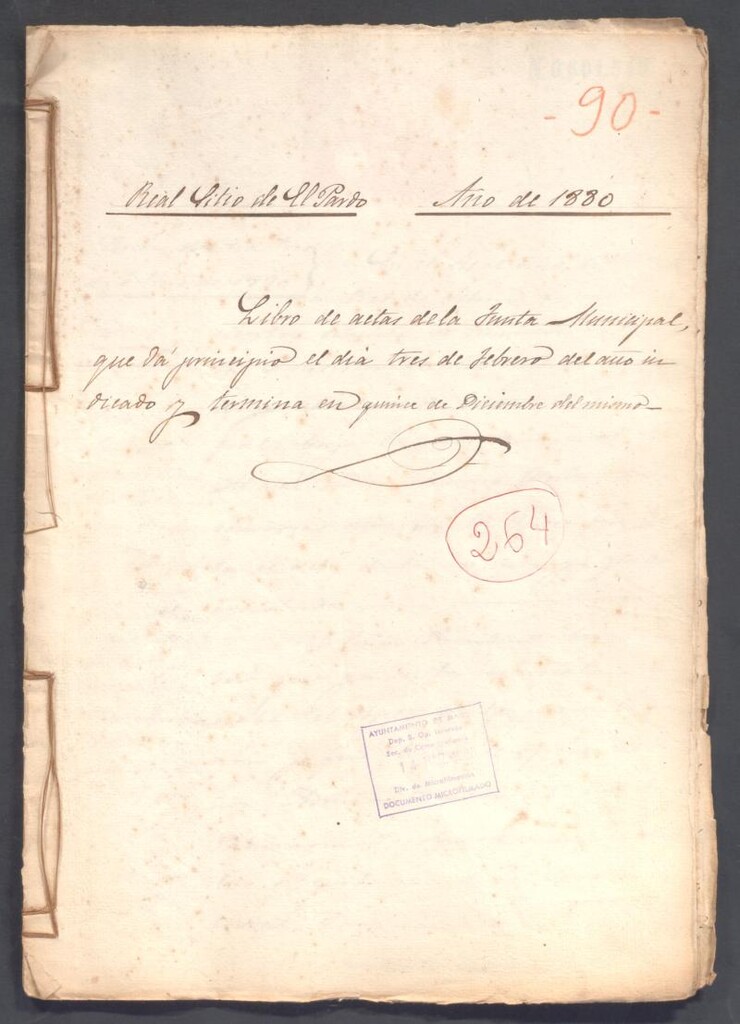 - 90 -
Real Sitio de El Pardo Año de 1880
Libro de actas de la Junta Municipal,
que dá principio el dia tres de febrero del año in
dicado y termina en quince de Diciembre del mismo
264
AYUNTAMIENTO DE
Dep. S. Op.
Sec. de
14
Div. de Microfilmación
DOCUMENTO MICROFILMADO